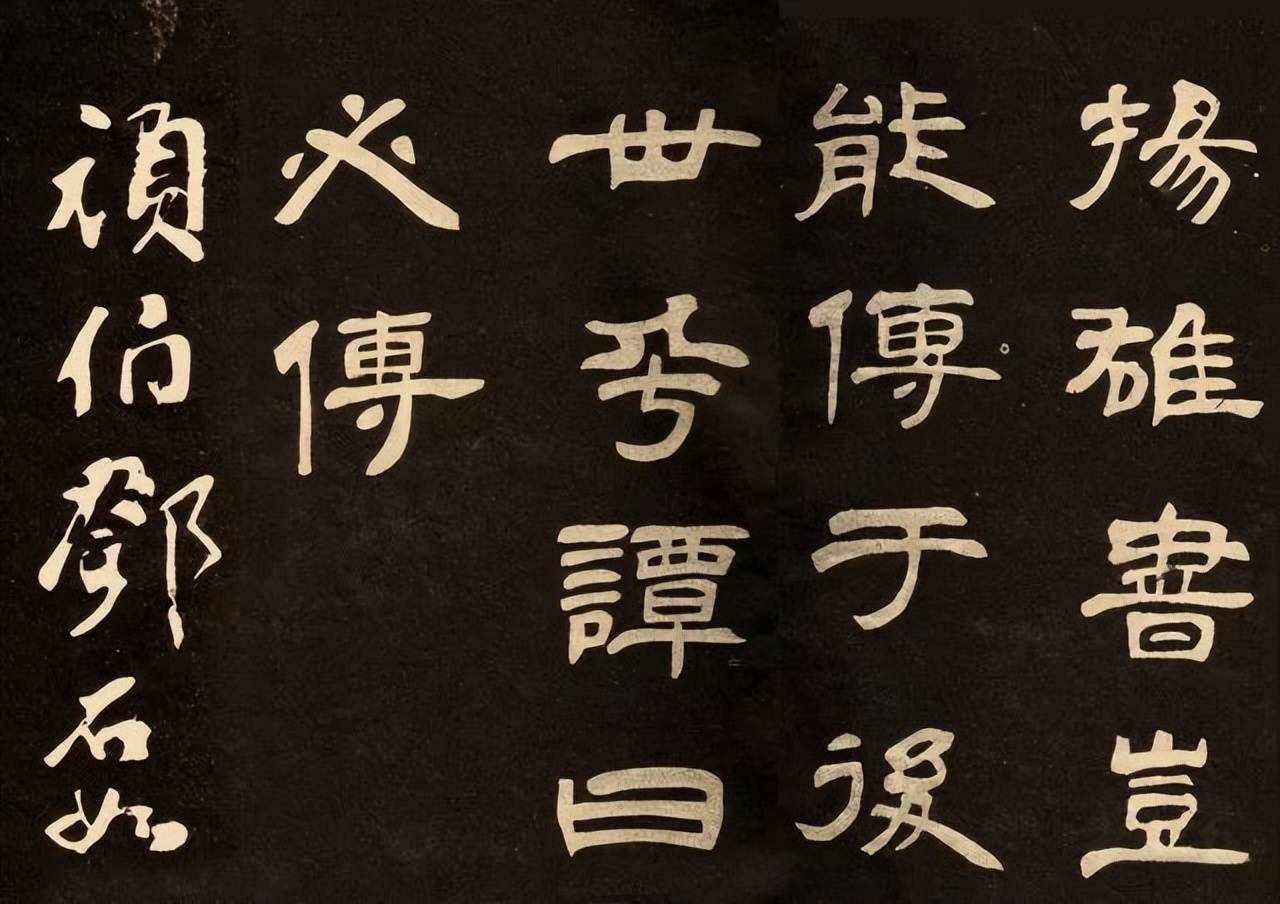 揚雄書豈
能傳于後
世乎譚曰
必傳
頑伯鄧石如